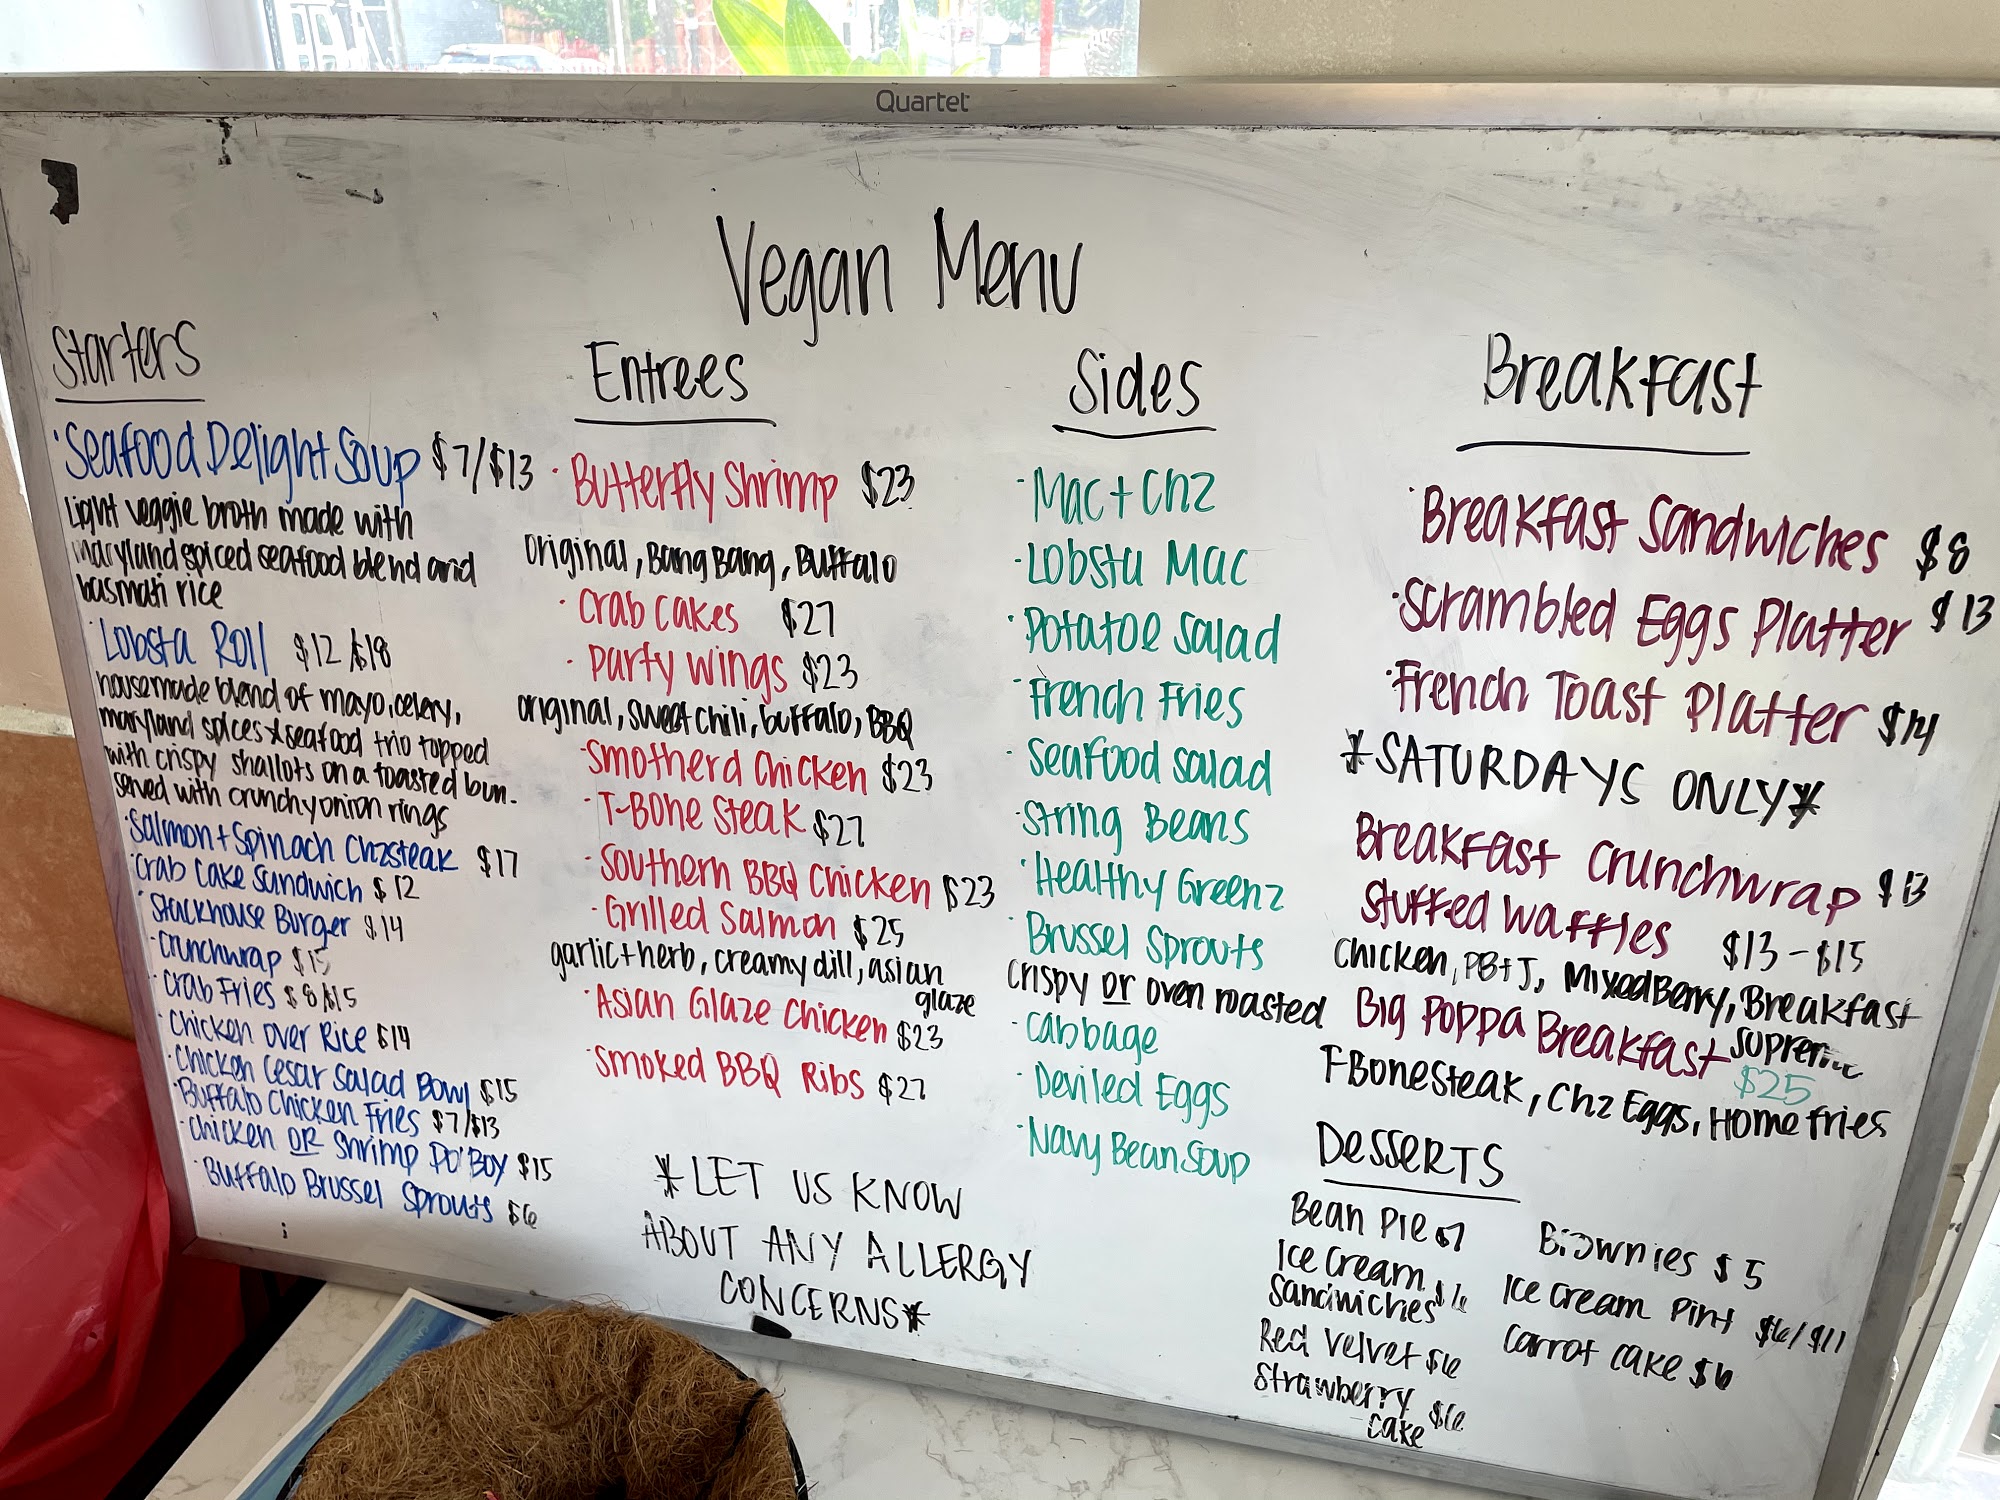 Quartet
Vegan Menu
Starters
· Seafood Delight Soup $7/$13
Light veggie broth made with
maryland spiced seafood blend and
basmati rice
· Lobsta Roll $12/$18
housemade blend of mayo, celery,
maryland spices & seafood trio topped
with crispy shallots on a toasted bun.
served with crunchy onion rings
· Salmon + Spinach Chzsteak $17
· Crab Cake Sandwich $12
· Stackhouse Burger $14
· Crunchwrap $15
· Crab Fries $8/$15
· Chicken Over Rice $14
· Chicken Cesar Salad Bowl $15
· Buffalo Chicken Fries $7/$13
· Chicken OR Shrimp Po'Boy $15
· Buffalo Brussel Sprouts $6
Entrees
· Butterfly Shrimp $23
Original, Bang Bang, Buffalo
· Crab Cakes $27
· Party Wings $23
original, sweet chili, buffalo, BBQ
· Smotherd Chicken $23
· T-Bone Steak $27
· Southern BBQ Chicken $23
· Grilled Salmon $25
garlic + herb, creamy dill, asian
glaze
· Asian Glaze Chicken $23
· Smoked BBQ Ribs $27
*LET US KNOW
ABOUT ANY ALLERGY
CONCERNS*
Sides
· Mac + Chz
· Lobsta Mac
· Potatoe Salad
· French Fries
· Seafood Salad
· String Beans
· Healthy Greenz
· Brussel Sprouts
Crispy or oven roasted
· Cabbage
· Deviled Eggs
· Navy Bean Soup
Breakfast
· Breakfast Sandwiches $8
· Scrambled Eggs Platter $13
· French Toast Platter $14
*SATURDAYS ONLY*
Breakfast Crunchwrap $13
Stuffed Waffles $13-$15
Chicken, PB+J, Mixed Berry, Breakfast
Supreme
Big Poppa Breakfast $25
T-Bone Steak, Chz Eggs, Home Fries
Desserts
Bean Pie $7
Ice Cream
Sandwiches $6
Red Velvet $6
Strawberry
Cake $6
Brownies $5
Ice Cream Pint $6/$11
Carrot Cake $6